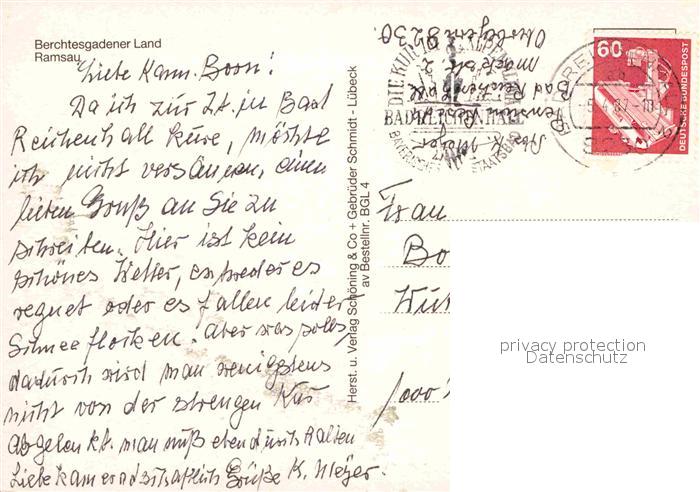 Berchtesgadener Land
Ramsau
Liebe Kam. Boon!
Da ich zur Zt. in Bad
Reichenhall kure, möchte
ich nicht versäumen, einen
lieben Gruß an Sie zu
schreiben. Hier ist kein
schönes Wetter, entweder es
regnet oder es fallen leider
Schneeflocken. Aber was solls,
dadurch wird man wenigstens
nicht von der strengen Kur
abgelenkt. man muß eben durchhalten
Liebe kameradschaftlich Grüße K. Meyer.
Herst. u. Verlag Schöning & Co + Gebrüder Schmidt - Lübeck
av Bestellnr. BGL 4
Abs. K. Meyer
Bad Reichenhall
8230
DIE KUR IN
BAD
BAYER. STAATSBAD
60
DEUTSCHE BUNDESPOST
Frau
Bo
Wur
1000
privacy protection
Datenschutz